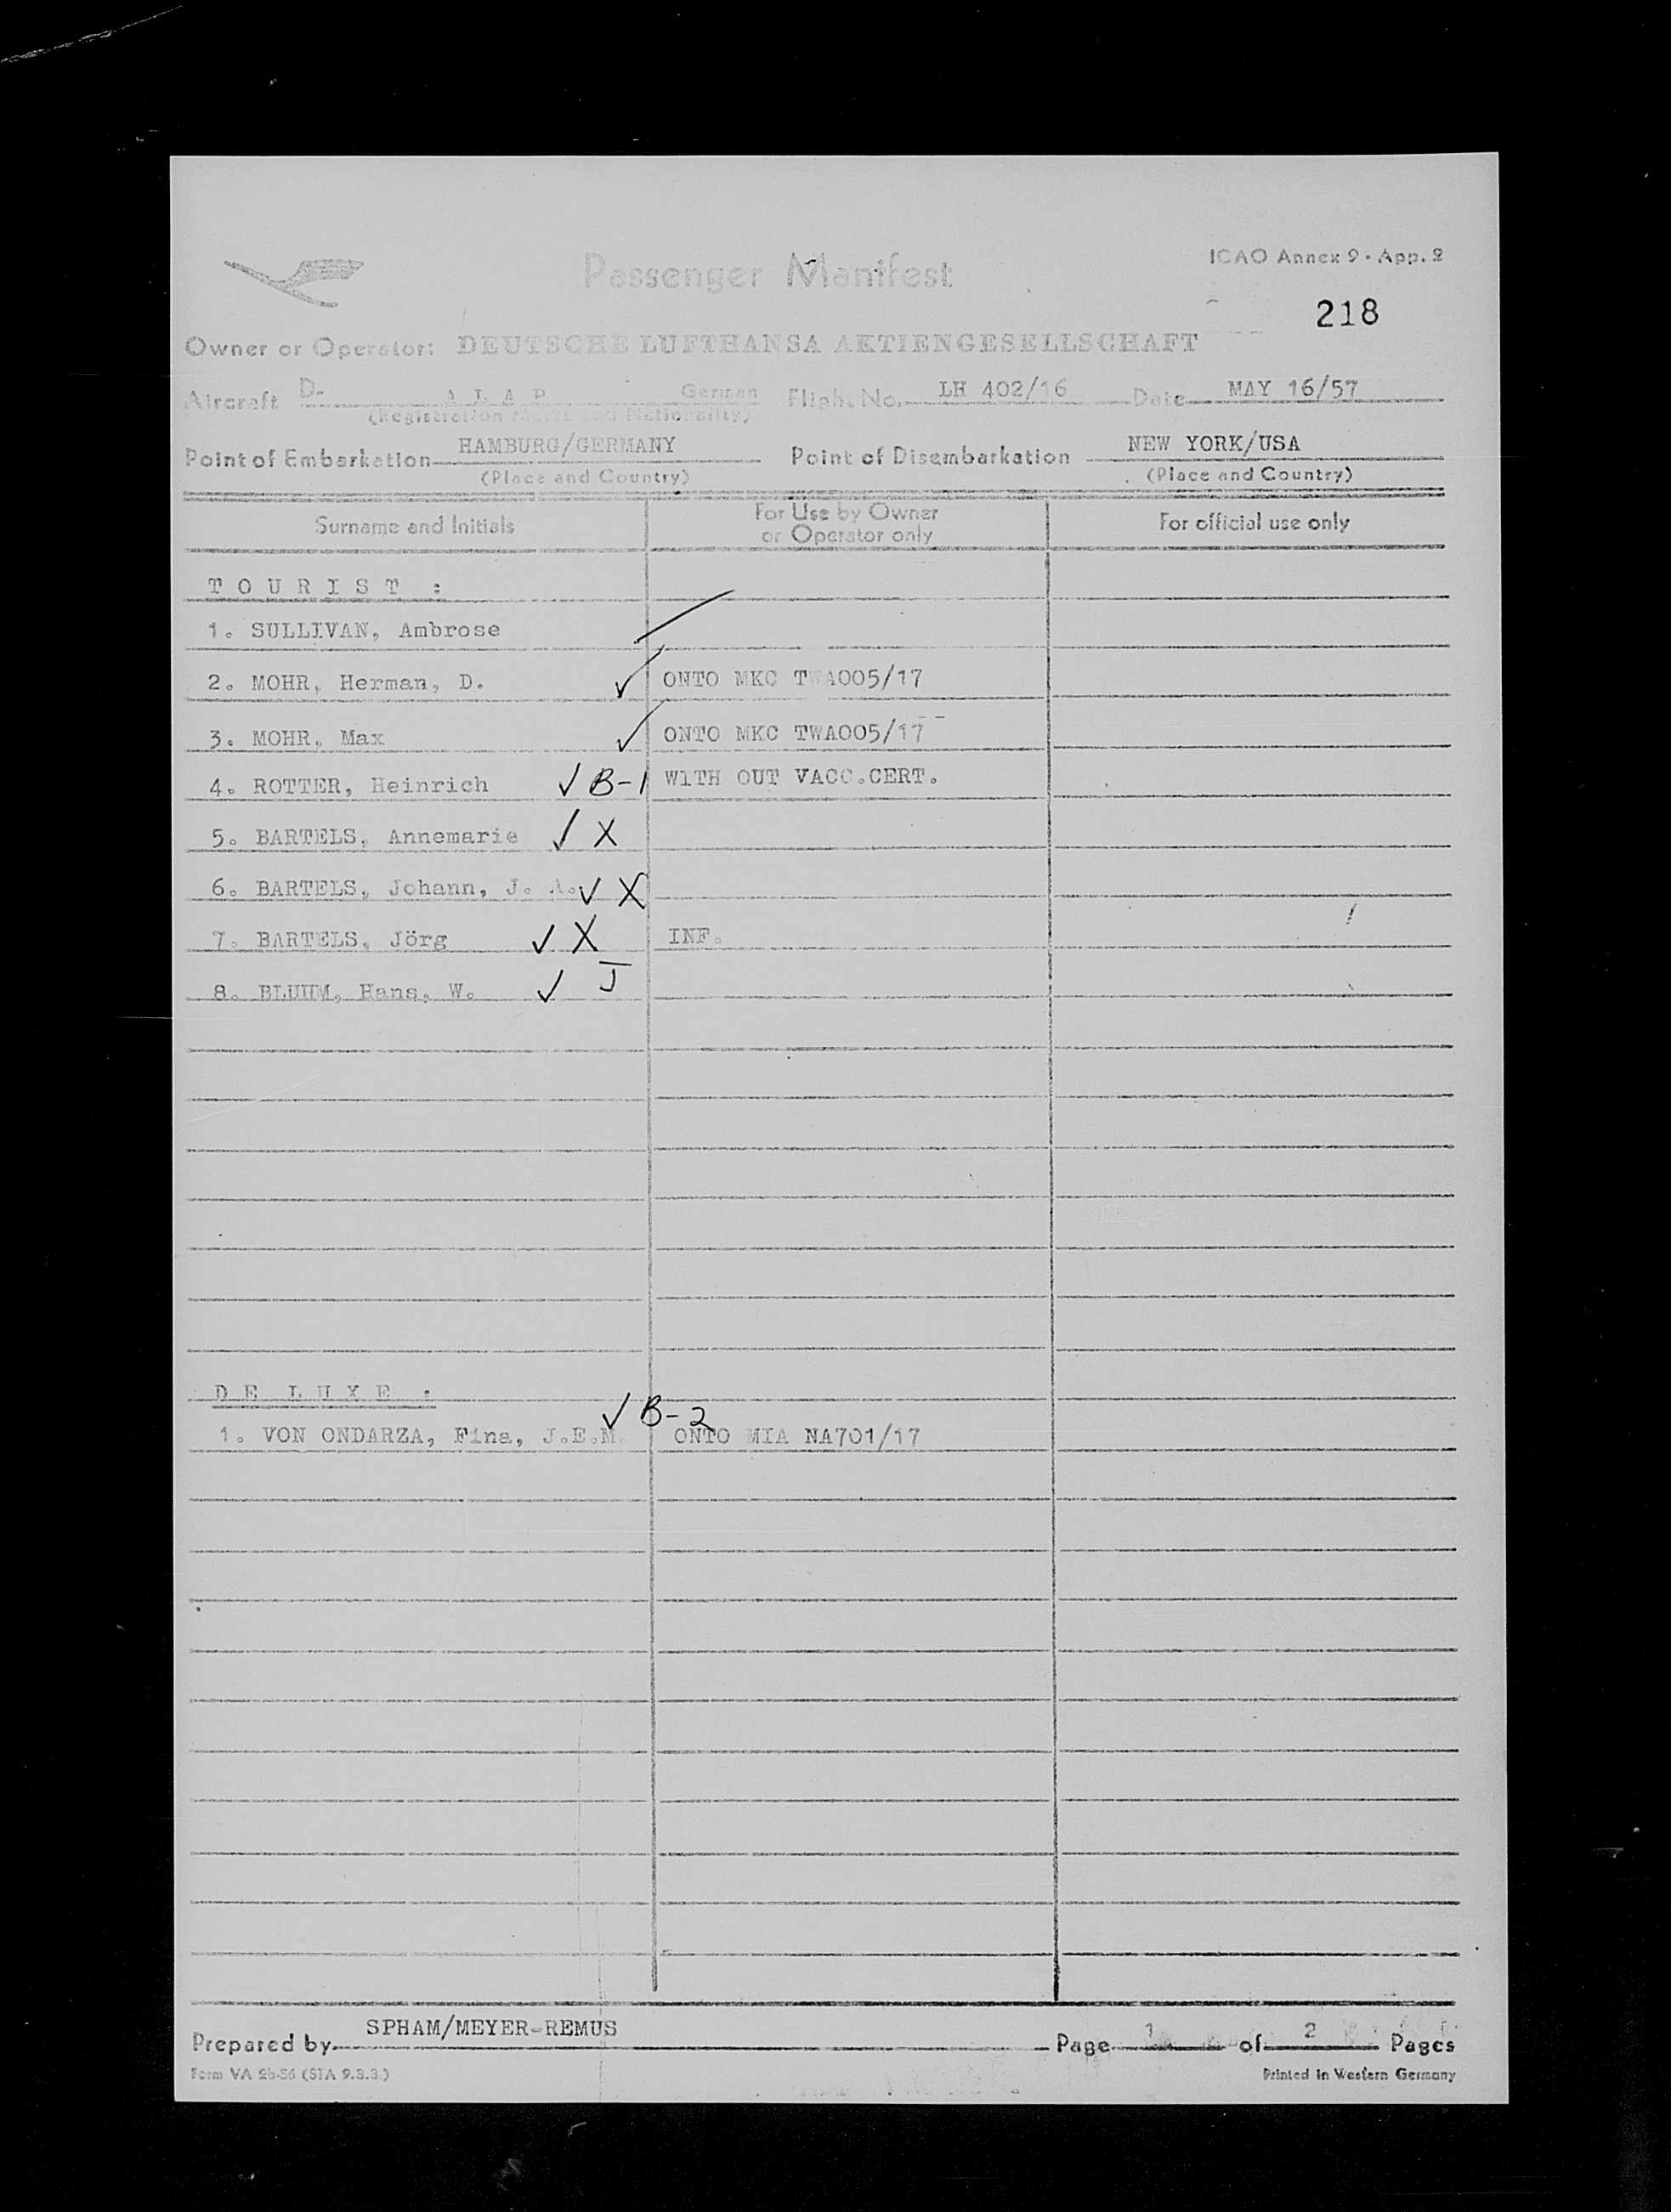 Passenger Manifest
ICAO Annex 9 · App. 2
218
Owner or Operator: DEUTSCHE LUFTHANSA AKTIENGESELLSCHAFT
Aircraft D- German Flight No. LH 402/16 Date MAY 16/57
(Registration Marks and Nationality)
Point of Embarkation HAMBURG/GERMANY Point of Disembarkation NEW YORK/USA
(Place and Country) (Place and Country)
Surname and Initials For Use by Owner or Operator only For official use only
T O U R I S T :
1. SULLIVAN, Ambrose
2. MOHR, Herman, D. ✓ ONTO MKC TWA005/17
3. MOHR, Max ✓ ONTO MKC TWA005/17
4. ROTTER, Heinrich ✓ B-1 WITH OUT VACC.CERT.
5. BARTELS, Annemarie ✓ X
6. BARTELS, Johann, J. A. ✓ X
7. BARTELS, Jörg ✓ X INF.
8. BLUHM, Hans, W. ✓ J
D E L U X E :
✓ B-2
1. VON ONDARZA, Fina, J.E.M. ONTO MIA NA701/17
Prepared by SPHAM/MEYER-REMUS Page 1 of 2 Pages
Form VA 2b-56 (STA 9.3.3.) Printed in Western Germany